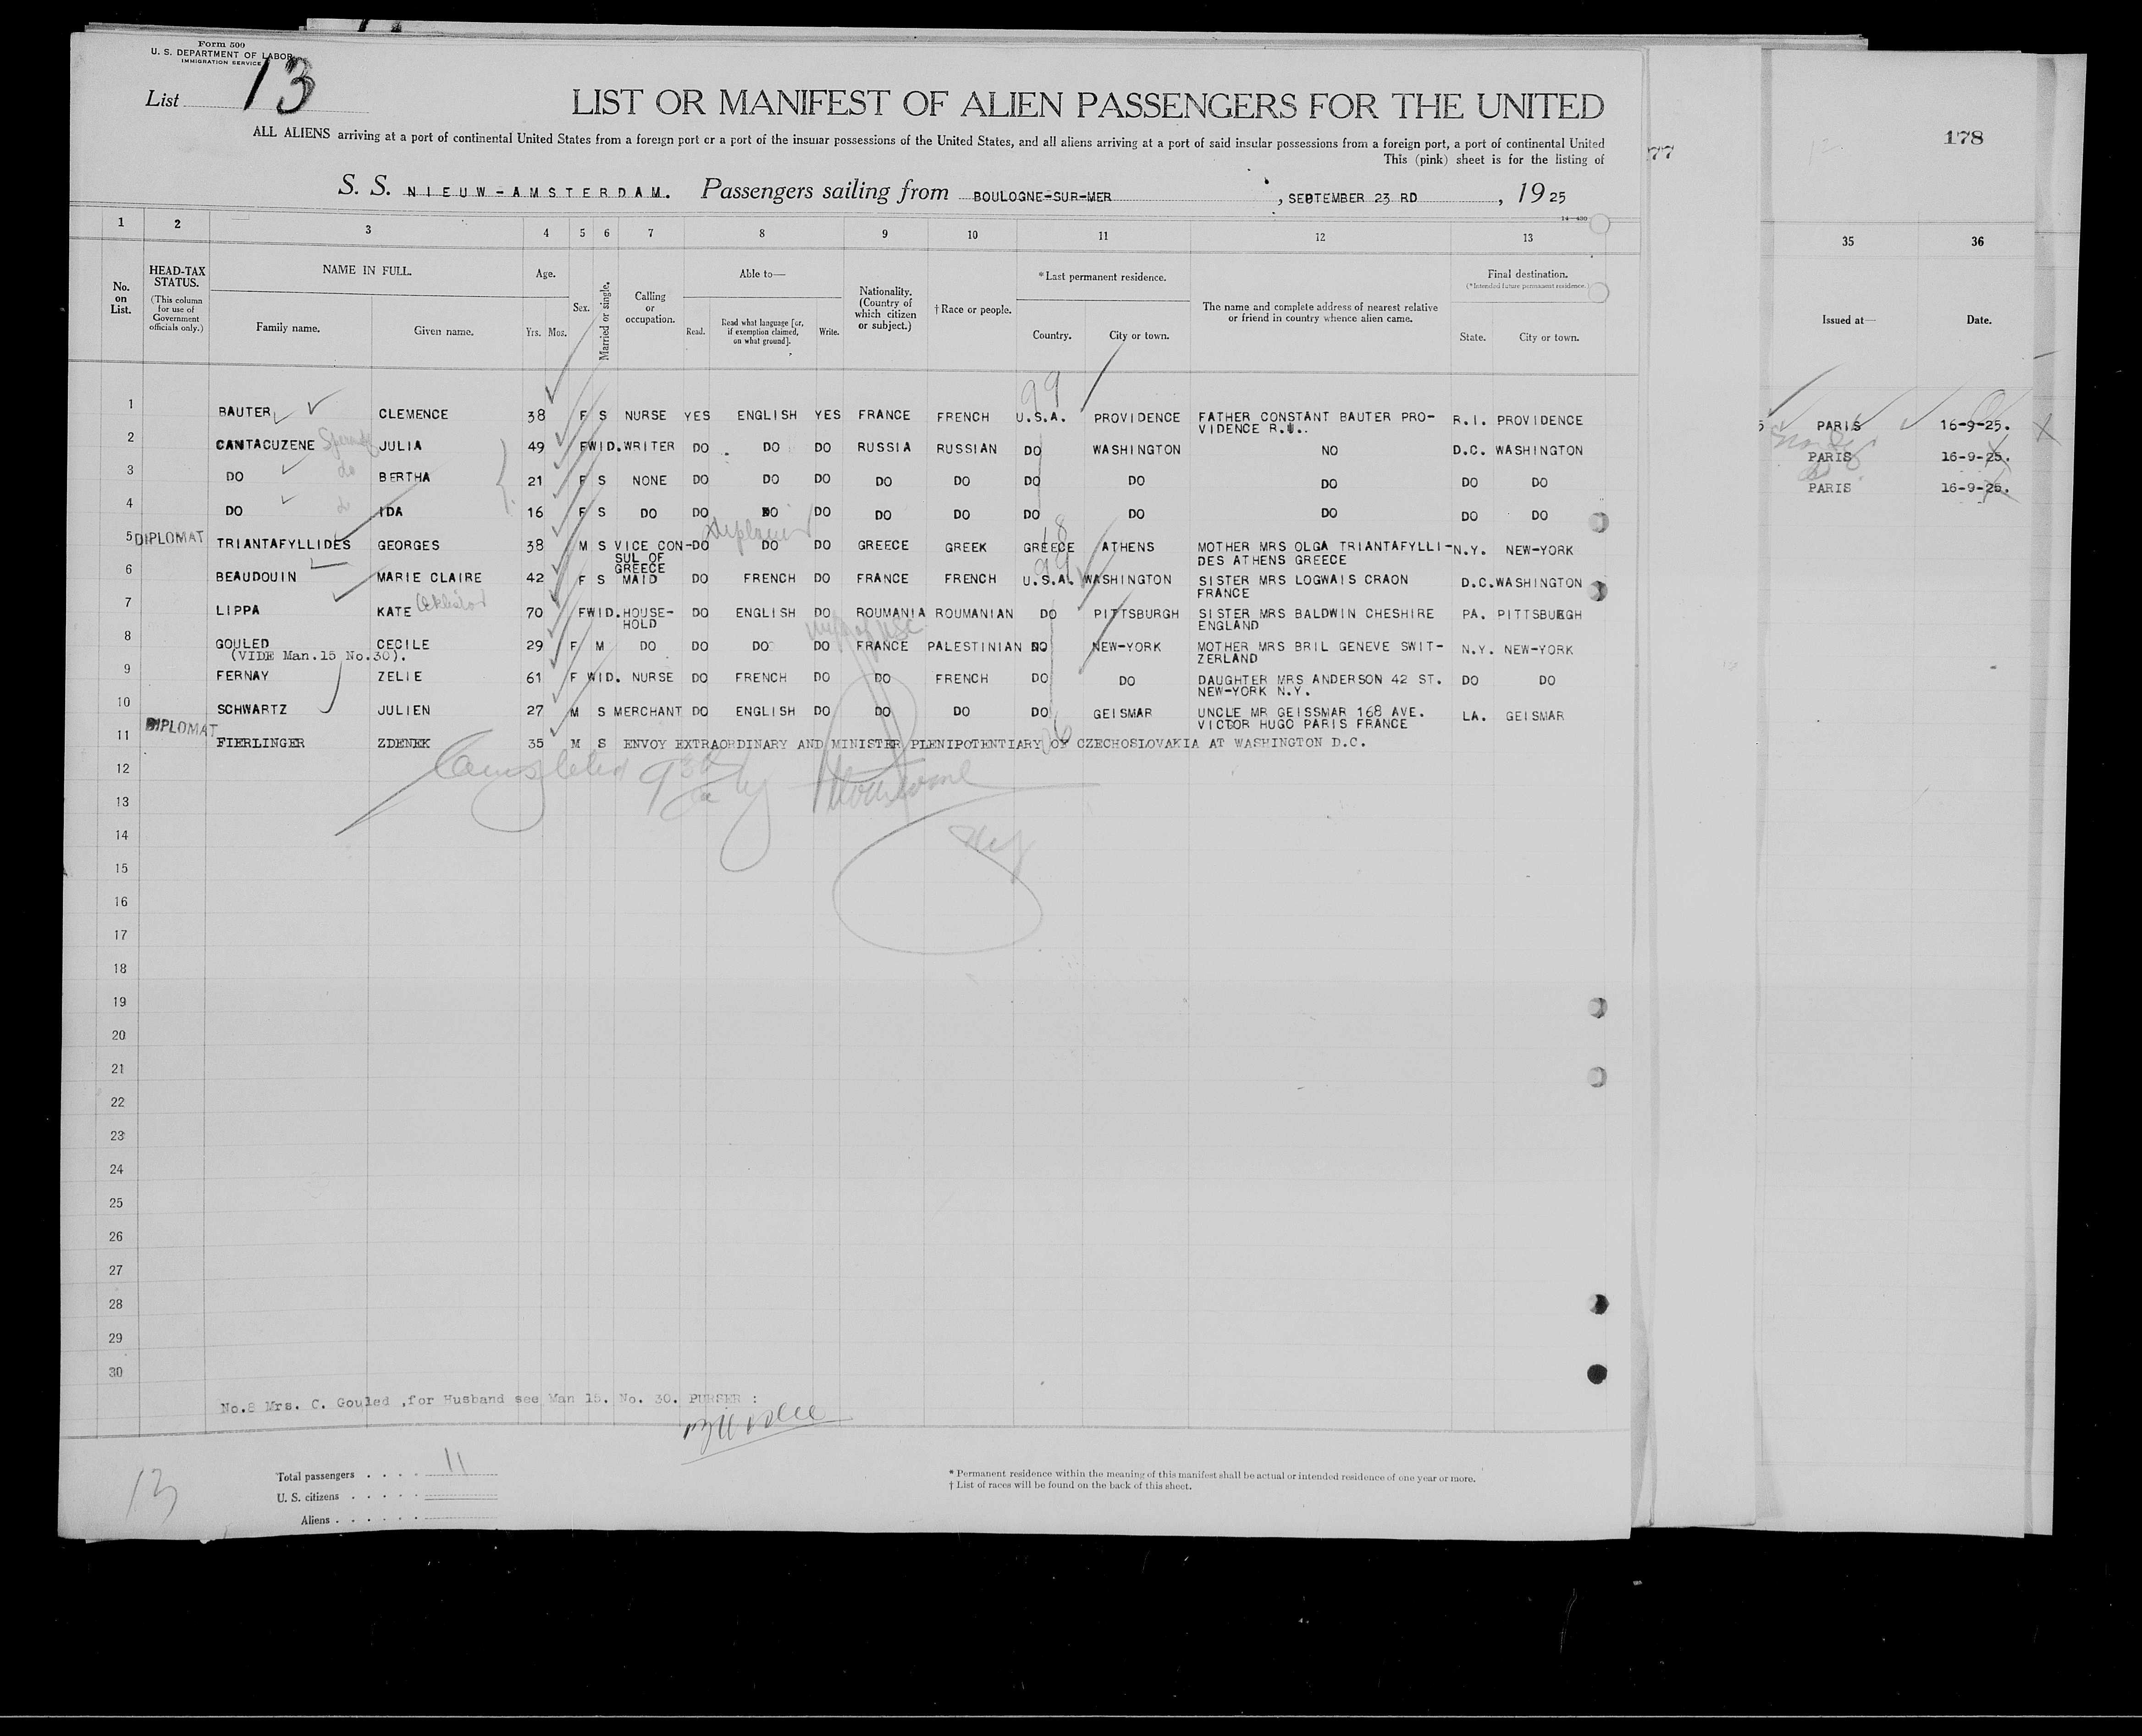 Form 500
U. S. DEPARTMENT OF LABOR
IMMIGRATION SERVICE
List 13
LIST OR MANIFEST OF ALIEN PASSENGERS FOR THE UNITED
ALL ALIENS arriving at a port of continental United States from a foreign port or a port of the insular possessions of the United States, and all aliens arriving at a port of said insular possessions from a foreign port, a port of continental United
This (pink) sheet is for the listing of
S. S. NIEUW-AMSTERDAM. Passengers sailing from BOULOGNE-SUR-MER, SEPTEMBER 23 RD, 1925
14-430
77
178
1 2 3 4 5 6 7 8 9 10 11 12 13 35 36
No. on List.
HEAD-TAX STATUS.
(This column for use of Government officials only.)
NAME IN FULL.
Family name. Given name.
Age.
Yrs. Mos.
Sex.
Married or single.
Calling or occupation.
Able to—
Read. Read what language [or, if exemption claimed, on what ground]. Write.
Nationality. (Country of which citizen or subject.)
† Race or people.
*Last permanent residence.
Country. City or town.
The name and complete address of nearest relative or friend in country whence alien came.
Final destination.
(*Intended future permanent residence.)
State. City or town.
Issued at— Date.
99
1 BAUTER CLEMENCE 38 F S NURSE YES ENGLISH YES FRANCE FRENCH U.S.A. PROVIDENCE FATHER CONSTANT BAUTER PRO- R.I. PROVIDENCE PARIS 16-9-25.
VIDENCE R.I..
2 CANTACUZENE JULIA 49 F WID. WRITER DO DO DO RUSSIA RUSSIAN DO WASHINGTON NO D.C. WASHINGTON PARIS 16-9-25.
3 DO do BERTHA 21 F S NONE DO DO DO DO DO DO DO DO DO DO PARIS 16-9-25.
4 DO IDA 16 F S DO DO DO DO DO DO DO DO DO DO DO
5 DIPLOMAT TRIANTAFYLLIDES GEORGES 38 M S VICE CON- DO DO DO GREECE GREEK GREECE ATHENS MOTHER MRS OLGA TRIANTAFYLLI- N.Y. NEW-YORK
SUL OF GREECE DES ATHENS GREECE
99
6 BEAUDOUIN MARIE CLAIRE 42 F S MAID DO FRENCH DO FRANCE FRENCH U.S.A. WASHINGTON SISTER MRS LOGWAIS CRAON D.C. WASHINGTON
FRANCE
7 LIPPA KATE 70 F WID. HOUSE- DO ENGLISH DO ROUMANIA ROUMANIAN DO PITTSBURGH SISTER MRS BALDWIN CHESHIRE PA. PITTSBURGH
HOLD ENGLAND
8 GOULED CECILE 29 F M DO DO DO DO FRANCE PALESTINIAN DO NEW-YORK MOTHER MRS BRIL GENEVE SWIT- N.Y. NEW-YORK
(VIDE Man.15 No.30). ZERLAND
9 FERNAY ZELIE 61 F WID. NURSE DO FRENCH DO DO FRENCH DO DO DAUGHTER MRS ANDERSON 42 ST. DO DO
NEW-YORK N.Y.
10 SCHWARTZ JULIEN 27 M S MERCHANT DO ENGLISH DO DO DO DO GEISMAR UNCLE MR GEISSMAR 168 AVE. LA. GEISMAR
VICTOR HUGO PARIS FRANCE
11 DIPLOMAT FIERLINGER ZDENEK 35 M S ENVOY EXTRAORDINARY AND MINISTER PLENIPOTENTIARY OF CZECHOSLOVAKIA AT WASHINGTON D.C.
12
13
14
15
16
17
18
19
20
21
22
23
24
25
26
27
28
29
30
No.8 Mrs. C. Gouled ,for Husband see Man 15. No. 30. PURSER :
13
Total passengers . . . . 11
U. S. citizens . . . . .
Aliens . . . . . .
* Permanent residence within the meaning of this manifest shall be actual or intended residence of one year or more.
† List of races will be found on the back of this sheet.